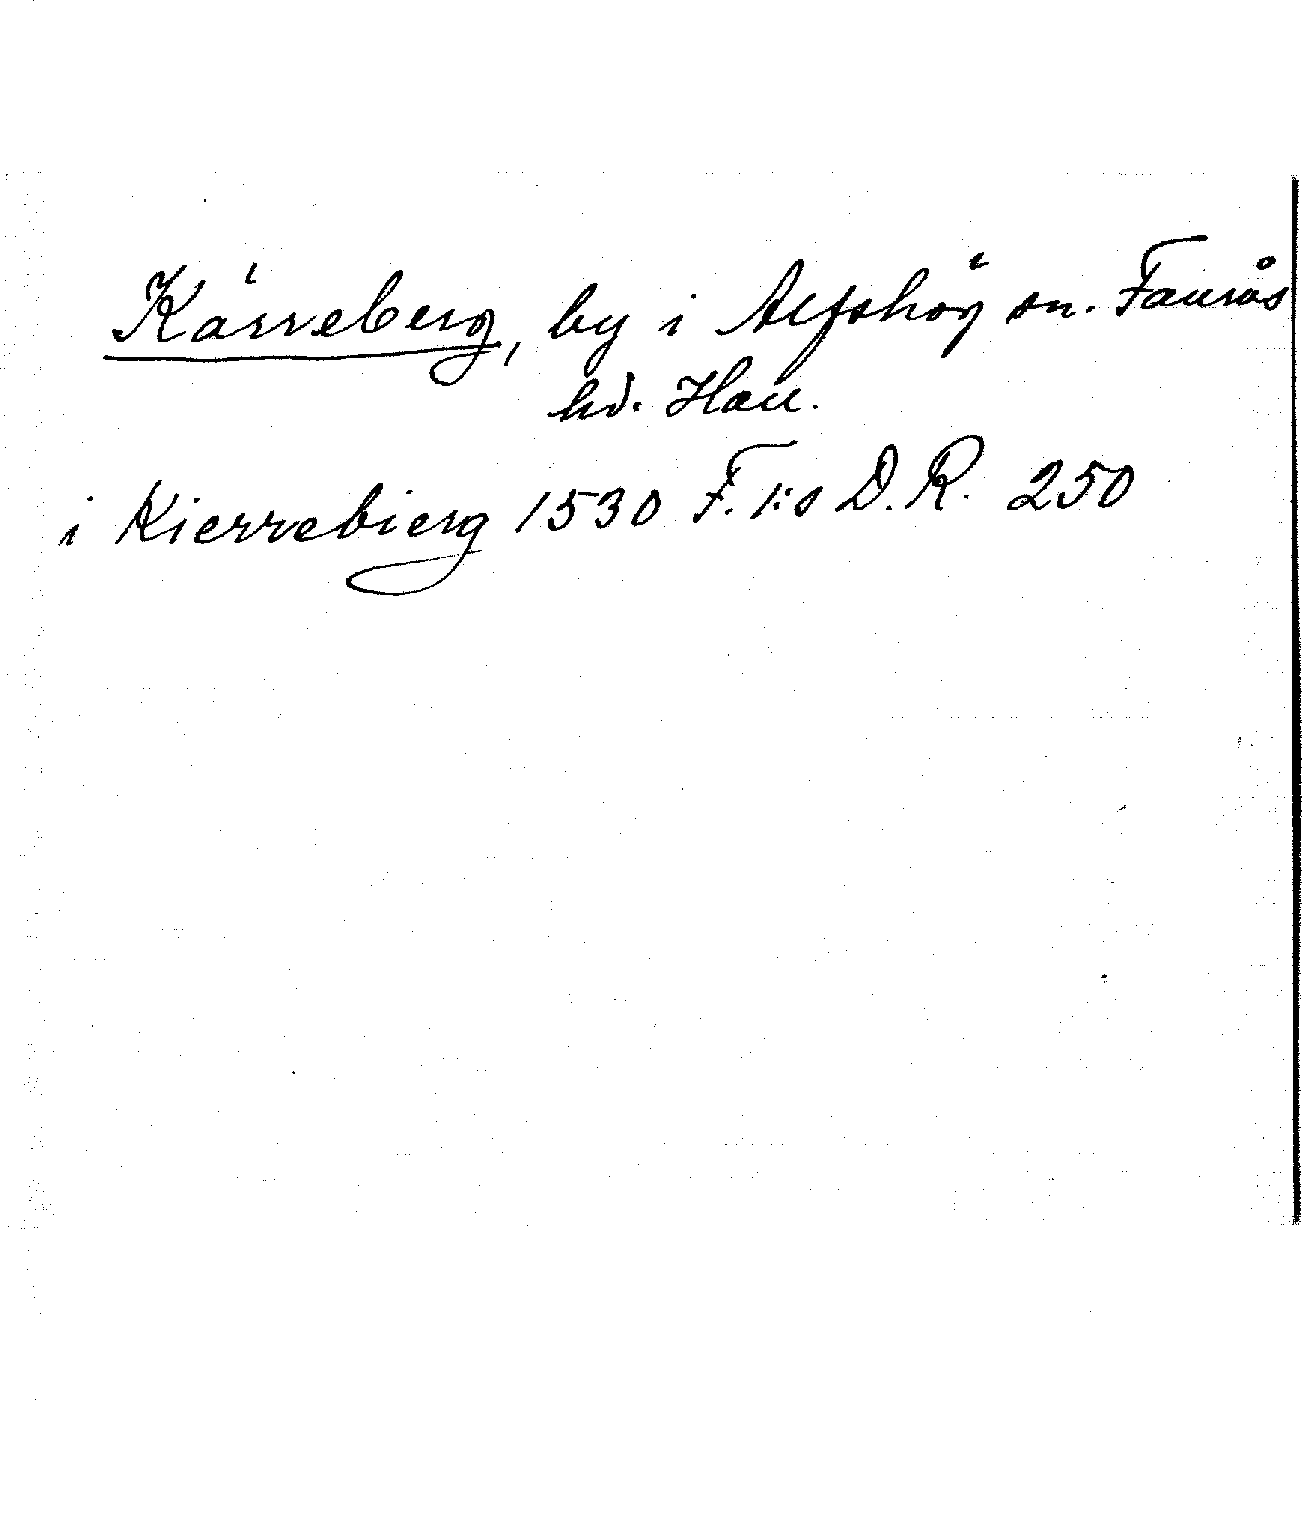 Kärreberg, by i Alfshög sn. Faurås
hd. Hall.
i Kierrebierg 1530 F. I:s D. R. 250